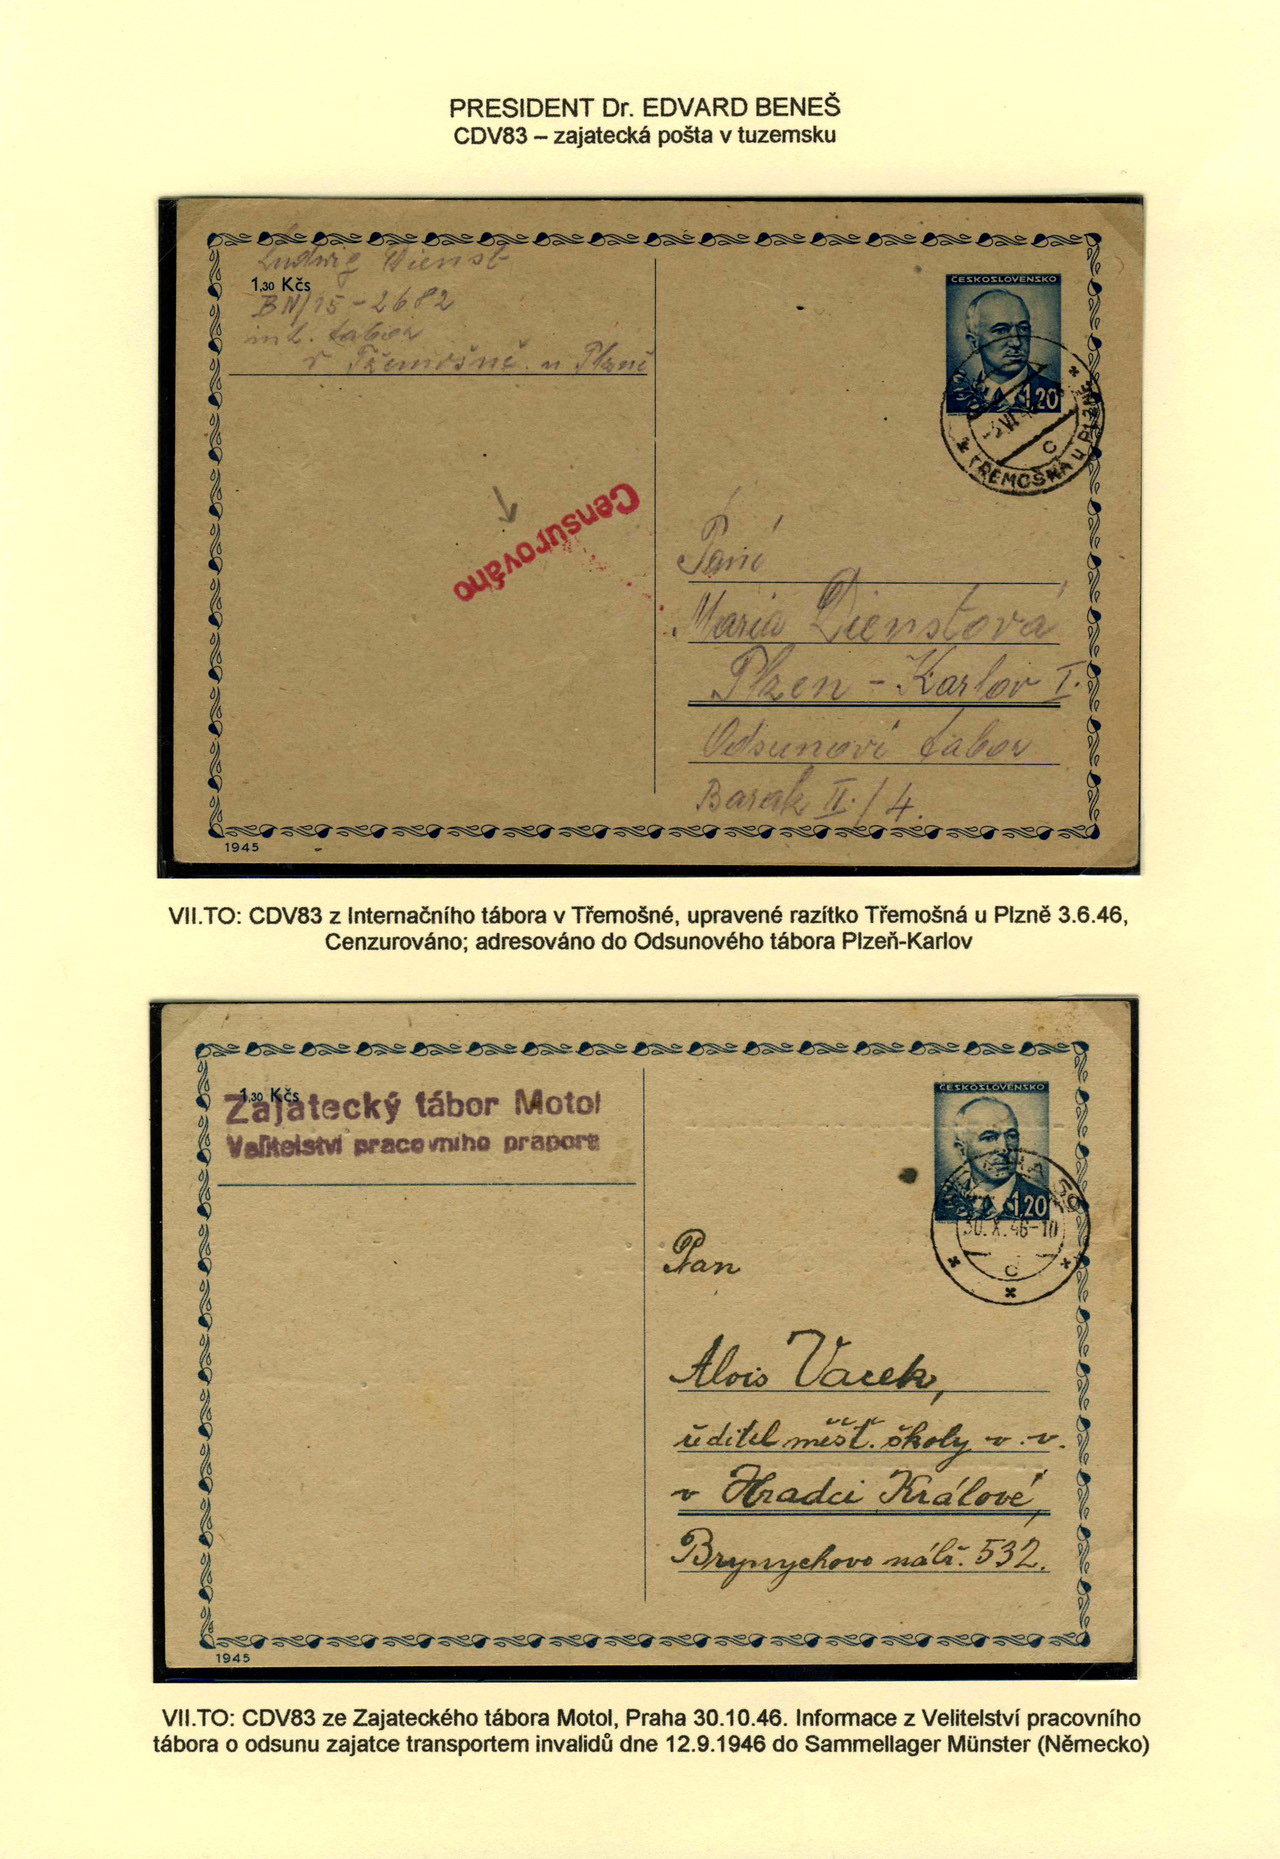 PRESIDENT Dr. EDVARD BENEŠ
CDV83 – zajatecká pošta v tuzemsku
Ludwig Dienst
1,30 Kčs
BN/15-2682
int. tabor
v Třemošné u Plzně
ČESKOSLOVENSKO
1,20
TŘEMOŠNÁ u PLZNĚ
C
Censurováno
Paní
Maria Dienstová
Plzen - Karlov I.
Odsunovi tabor
Barak II./4.
1945
VII.TO: CDV83 z Internačního tábora v Třemošné, upravené razítko Třemošná u Plzně 3.6.46,
Cenzurováno; adresováno do Odsunového tábora Plzeň-Karlov
1,30 Kčs
Zajatecký tábor Motol
Velitelství pracovního praporu
ČESKOSLOVENSKO
1,20
30.X.46-10
C
Pan
Alois Vacek,
ředitel měšť. školy v. v.
v Hradci Králové,
Brynychovo nábř. 532.
1945
VII.TO: CDV83 ze Zajateckého tábora Motol, Praha 30.10.46. Informace z Velitelství pracovního
tábora o odsunu zajatce transportem invalidů dne 12.9.1946 do Sammellager Münster (Německo)